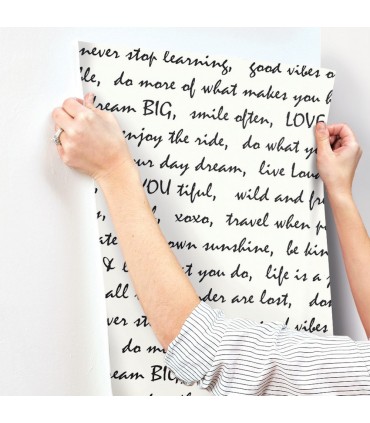 never stop learning, good vibes o
le, do more of what makes you h
dream BIG, smile often, LOVE
enjoy the ride, do what yo
our day dream, live Loud
YOU tiful, wild and fre
xoxo, travel when p
ate own sunshine, be kin
& l t you do, life is a j
all nder are lost, don
ver sto d vibes
do mo
eam BIG,